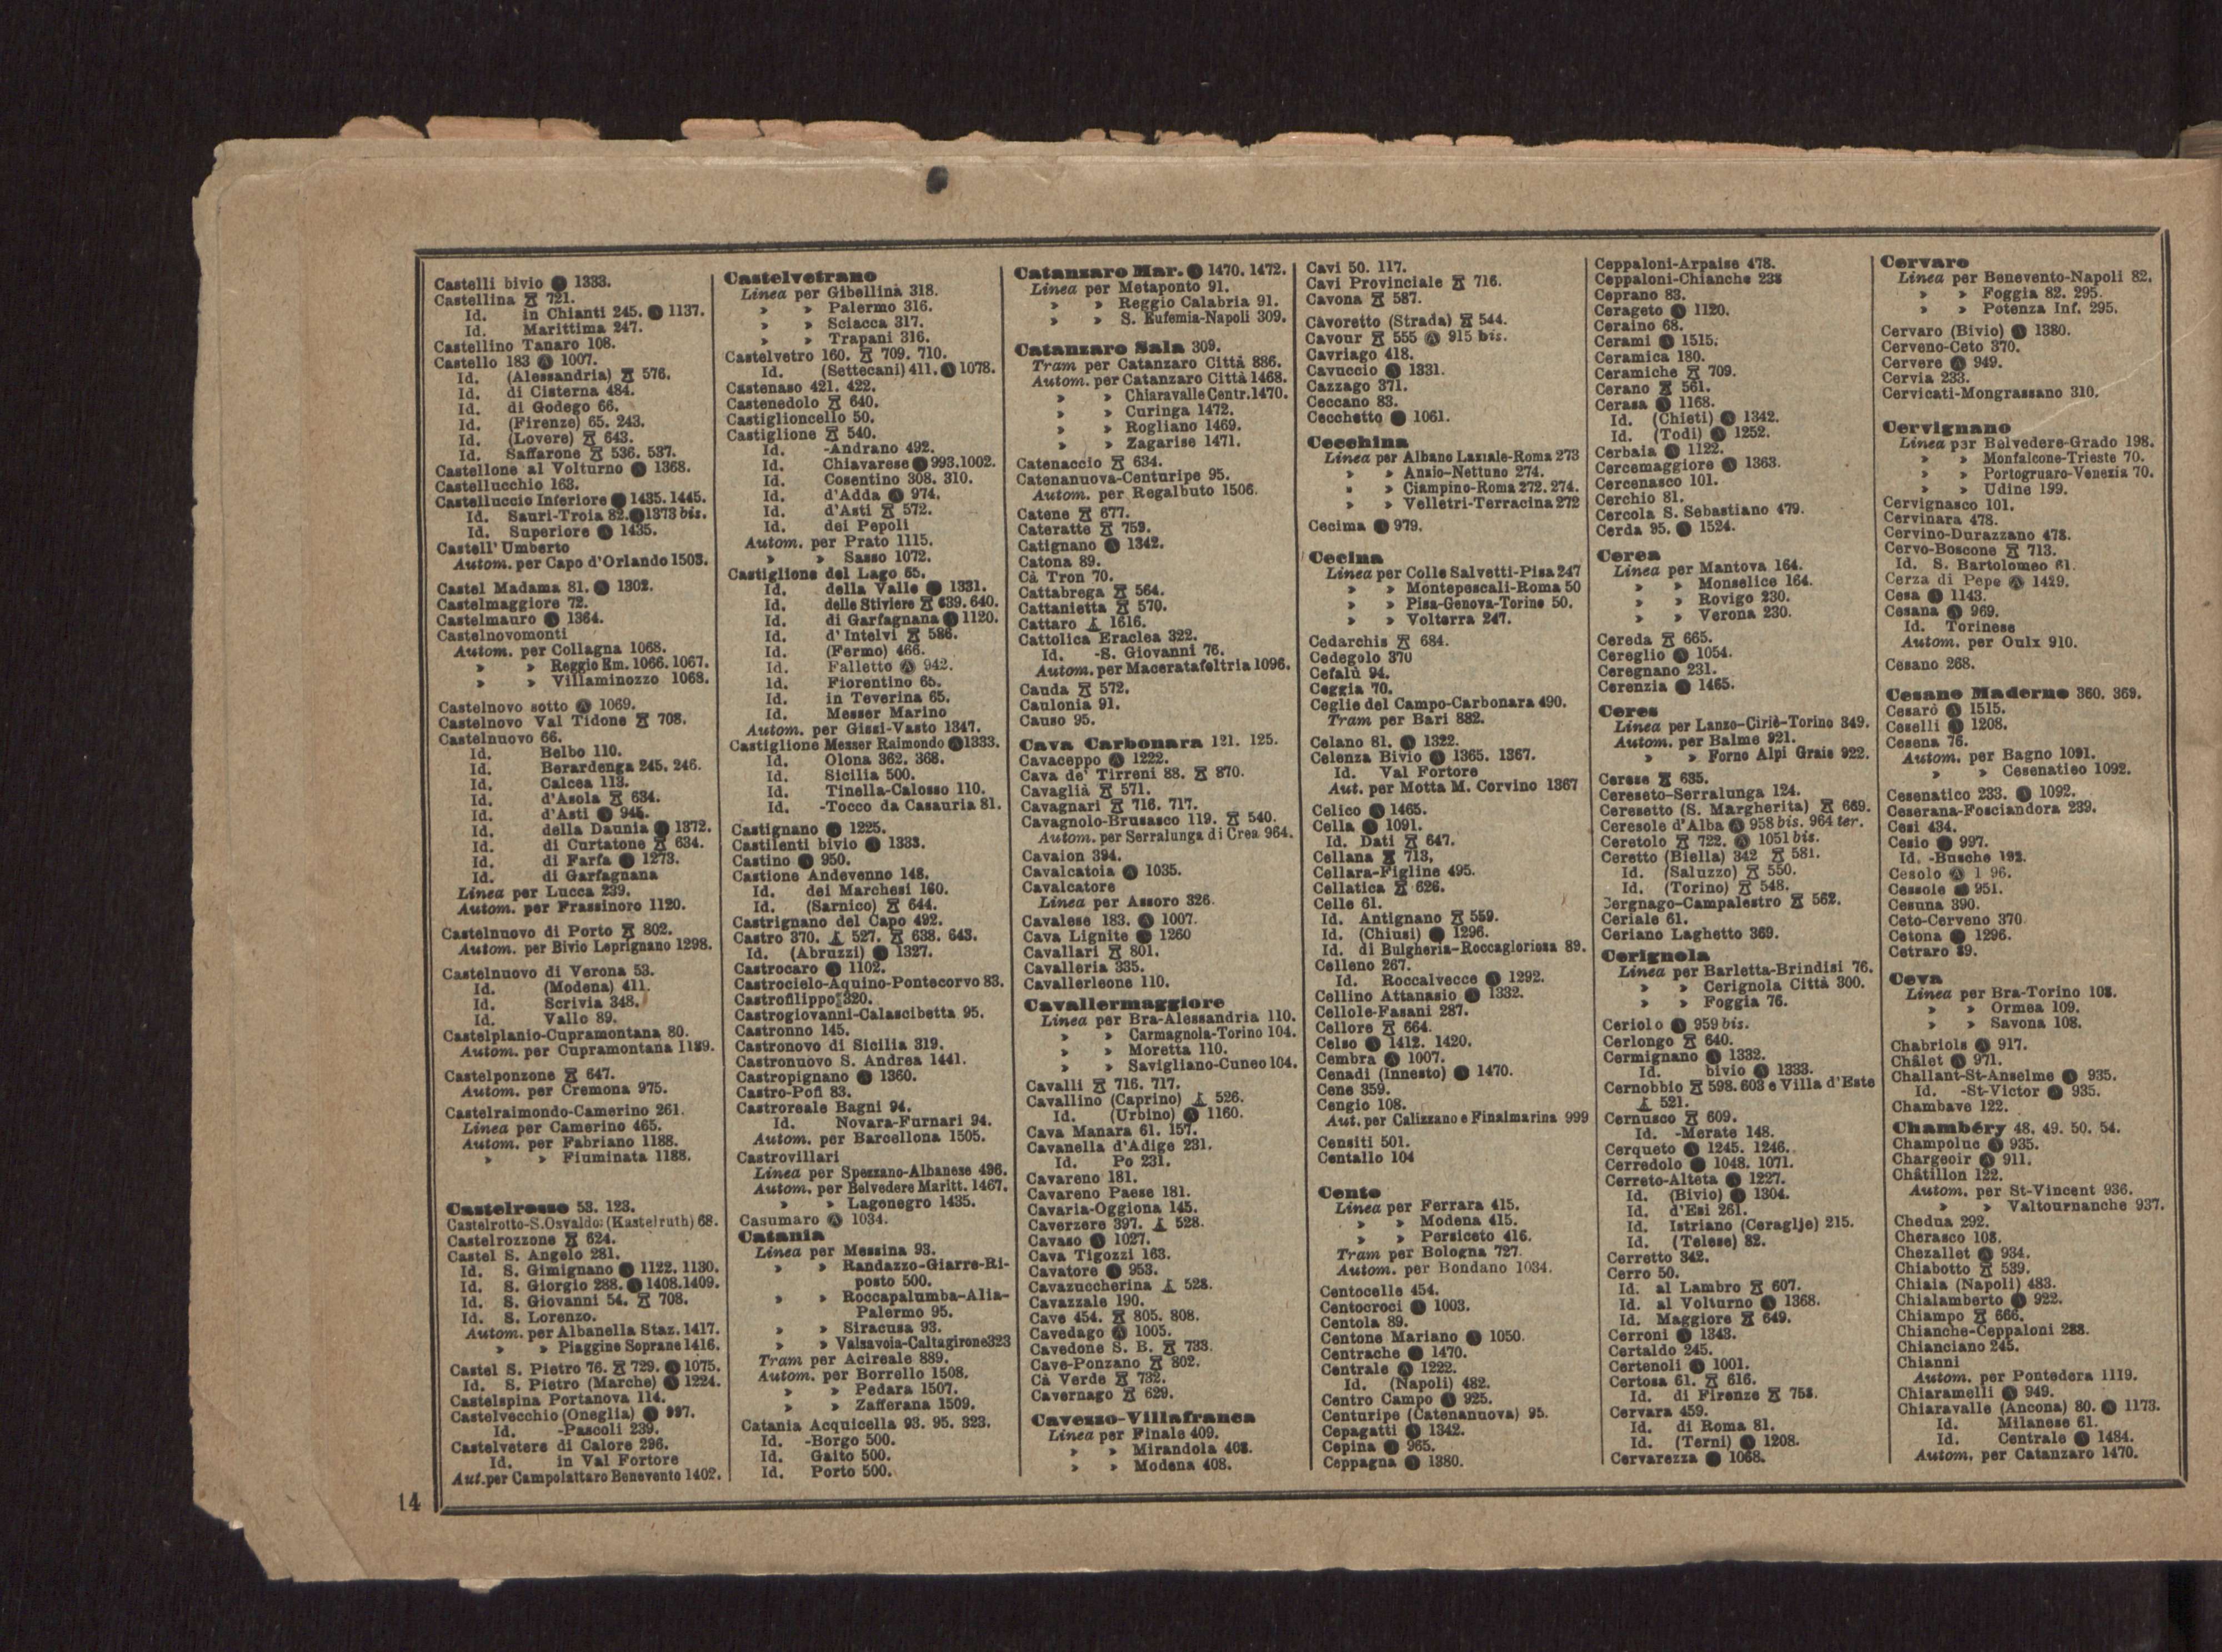 Castelli bivio Ⓐ 1333.
Castellina 721.
Id. in Chianti 245. Ⓐ 1137.
Id. Marittima 247.
Castellino Tanaro 108.
Castello 183 Ⓐ 1007.
Id. (Alessandria) 576.
Id. di Cisterna 484.
Id. di Godego 66.
Id. (Firenze) 65. 243.
Id. (Lovere) 643.
Id. Saffarone 536. 537.
Castellone al Volturno Ⓐ 1368.
Castellucchio 163.
Castelluccio Inferiore Ⓐ 1435. 1445.
Id. Sauri-Troia 82. Ⓐ 1373 bis.
Id. Superiore Ⓐ 1435.
Castell' Umberto
Autom. per Capo d'Orlando 1503.
Castel Madama 81. Ⓐ 1302.
Castelmaggiore 72.
Castelmauro Ⓐ 1364.
Castelnovomonti
Autom. per Collagna 1068.
» » Reggio Em. 1066. 1067.
» » Villaminozzo 1068.
Castelnovo sotto Ⓐ 1069.
Castelnovo Val Tidone 708.
Castelnuovo 66.
Id. Belbo 110.
Id. Berardenga 245. 246.
Id. Calcea 113.
Id. d'Asola 634.
Id. d'Asti Ⓐ 945.
Id. della Daunia Ⓐ 1372.
Id. di Curtatone 634.
Id. di Farfa Ⓐ 1273.
Id. di Garfagnana
Linea per Lucca 239.
Autom. per Frassinoro 1120.
Castelnuovo di Porto 802.
Autom. per Bivio Leprignano 1298.
Castelnuovo di Verona 53.
Id. (Modena) 411.
Id. Scrivia 348.
Id. Vallo 89.
Castelplanio-Cupramontana 80.
Autom. per Cupramontana 1189.
Castelponzone 647.
Autom. per Cremona 975.
Castelraimondo-Camerino 261.
Linea per Camerino 465.
Autom. per Fabriano 1188.
» » Fiuminata 1188.
Castelrosso 53. 123.
Castelrotto-S.Osvaldo: (Kastelruth) 68.
Castelrozzone 624.
Castel S. Angelo 281.
Id. S. Gimignano Ⓐ 1122. 1130.
Id. S. Giorgio 288. Ⓐ 1408.1409.
Id. S. Giovanni 54. 708.
Id. S. Lorenzo.
Autom. per Albanella Staz. 1417.
» » Piaggine Soprane 1416.
Castel S. Pietro 76. 729. Ⓐ 1075.
Id. S. Pietro (Marche) Ⓐ 1224.
Castelspina Portanova 114.
Castelvecchio (Oneglia) Ⓐ 997.
Id. -Pascoli 239.
Castelvetere di Calore 296.
Id. in Val Fortore
Aut. per Campolattaro Benevento 1402.
Castelvetrano
Linea per Gibellina 318.
» » Palermo 316.
» » Sciacca 317.
» » Trapani 316.
Castelvetro 160. 709. 710.
Id. (Settecani) 411. Ⓐ 1078.
Castenaso 421. 422.
Castenedolo 640.
Castiglioncello 50.
Castiglione 540.
Id. -Andrano 492.
Id. Chiavarese Ⓐ 993.1002.
Id. Cosentino 308. 310.
Id. d'Adda Ⓐ 974.
Id. d'Asti 572.
Id. dei Pepoli
Autom. per Prato 1115.
» » Sasso 1072.
Castiglione del Lago 65.
Id. della Valle Ⓐ 1331.
Id. delle Stiviere 639. 640.
Id. di Garfagnana Ⓐ 1120.
Id. d'Intelvi 586.
Id. (Fermo) 466.
Id. Falletto Ⓐ 942.
Id. Fiorentino 65.
Id. in Teverina 65.
Id. Messer Marino
Autom. per Gissi-Vasto 1347.
Castiglione Messer Raimondo Ⓐ 1333.
Id. Olona 362. 368.
Id. Sicilia 500.
Id. Tinella-Calosso 110.
Id. -Tocco da Casauria 81.
Castignano Ⓐ 1225.
Castilenti bivio Ⓐ 1333.
Castino Ⓐ 950.
Castione Andevenno 148.
Id. dei Marchesi 160.
Id. (Sarnico) 644.
Castrignano del Capo 492.
Castro 370. 527. 638. 643.
Id. (Abruzzi) Ⓐ 1327.
Castrocaro Ⓐ 1102.
Castrocielo-Aquino-Pontecorvo 83.
Castrofilippo 320.
Castrogiovanni-Calascibetta 95.
Castronno 145.
Castronovo di Sicilia 319.
Castronuovo S. Andrea 1441.
Castropignano Ⓐ 1360.
Castro-Pofi 83.
Castroreale Bagni 94.
Id. Novara-Furnari 94.
Autom. per Barcellona 1505.
Castrovillari
Linea per Spezzano-Albanese 496.
Autom. per Belvedere Maritt. 1467.
» » Lagonegro 1435.
Casumaro Ⓐ 1034.
Catania
Linea per Messina 93.
» » Randazzo-Giarre-Ri-
posto 500.
» » Roccapalumba-Alia-
Palermo 95.
» » Siracusa 93.
» » Valsavoia-Caltagirone 323
Tram per Acireale 889.
Autom. per Borrello 1508.
» » Pedara 1507.
» » Zafferana 1509.
Catania Acquicella 93. 95. 323.
Id. -Borgo 500.
Id. Gaito 500.
Id. Porto 500.
Catanzaro Mar. Ⓐ 1470. 1472.
Linea per Metaponto 91.
» » Reggio Calabria 91.
» » S. Eufemia-Napoli 309.
Catanzaro Sala 309.
Tram per Catanzaro Città 886.
Autom. per Catanzaro Città 1468.
» » Chiaravalle Centr. 1470.
» » Curinga 1472.
» » Rogliano 1469.
» » Zagarise 1471.
Catenaccio 634.
Catenanuova-Centuripe 95.
Autom. per Regalbuto 1506.
Catene 677.
Cateratte 759.
Catignano Ⓐ 1342.
Catona 89.
Cà Tron 70.
Cattabrega 564.
Cattanietta 570.
Cattaro 1616.
Cattolica Eraclea 322.
Id. -S. Giovanni 76.
Autom. per Maceratafeltria 1096.
Cauda 572.
Caulonia 91.
Causo 95.
Cava Carbonara 121. 125.
Cavaceppo Ⓐ 1222.
Cava de' Tirreni 88. 870.
Cavaglià 571.
Cavagnari 716. 717.
Cavagnolo-Brusasco 119. 540.
Autom. per Serralunga di Crea 964.
Cavaion 394.
Cavalcatoia Ⓐ 1035.
Cavalcatore
Linea per Assoro 326.
Cavalese 183. Ⓐ 1007.
Cava Lignite Ⓐ 1260
Cavallari 801.
Cavalleria 335.
Cavallerleone 110.
Cavallermaggiore
Linea per Bra-Alessandria 110.
» » Carmagnola-Torino 104.
» » Moretta 110.
» » Savigliano-Cuneo 104.
Cavalli 716. 717.
Cavallino (Caprino) 526.
Id. (Urbino) Ⓐ 1160.
Cava Manara 61. 157.
Cavanella d'Adige 231.
Id. Po 231.
Cavareno 181.
Cavareno Paese 181.
Cavaria-Oggiona 145.
Caverzere 397. 528.
Cavaso Ⓐ 1027.
Cava Tigozzi 163.
Cavatore Ⓐ 953.
Cavazuccherina 528.
Cavazzale 190.
Cave 454. 805. 808.
Cavedago Ⓐ 1005.
Cavedone S. B. 733.
Cave-Ponzano 802.
Cà Verde 732.
Cavernago 629.
Cavezzo-Villafranca
Linea per Finale 409.
» » Mirandola 408.
» » Modena 408.
Cavi 50. 117.
Cavi Provinciale 716.
Cavona 587.
Càvoretto (Strada) 544.
Cavour 555 Ⓐ 915 bis.
Cavriago 418.
Cavuccio Ⓐ 1331.
Cazzago 371.
Ceccano 83.
Cecchetto Ⓐ 1061.
Cecchina
Linea per Albano Laziale-Roma 273
» » Anzio-Nettuno 274.
» » Ciampino-Roma 272. 274.
» » Velletri-Terracina 272
Cecima Ⓐ 979.
Cecina
Linea per Colle Salvetti-Pisa 247
» » Montepescali-Roma 50
» » Pisa-Genova-Torino 50.
» » Volterra 247.
Cedarchis 684.
Cedegolo 370
Cefalù 94.
Ceggia 70.
Ceglie del Campo-Carbonara 490.
Tram per Bari 882.
Celano 81. Ⓐ 1322.
Celenza Bivio Ⓐ 1365. 1367.
Id. Val Fortore
Aut. per Motta M. Corvino 1367
Celico Ⓐ 1465.
Cella Ⓐ 1091.
Id. Dati 647.
Cellana 713,
Cellara-Figline 495.
Cellatica 626.
Celle 61.
Id. Antignano 559.
Id. (Chiusi) Ⓐ 1296.
Id. di Bulgheria-Roccagloriosa 89.
Celleno 267.
Id. Roccalvecce Ⓐ 1292.
Cellino Attanasio Ⓐ 1332.
Cellole-Fasani 287.
Cellore 664.
Celso Ⓐ 1412. 1420.
Cembra Ⓐ 1007.
Cenadi (Innesto) Ⓐ 1470.
Cene 359.
Cengio 108.
Aut. per Calizzano e Finalmarina 999
Censiti 501.
Centallo 104
Cento
Linea per Ferrara 415.
» » Modena 415.
» » Persiceto 416.
Tram per Bologna 727.
Autom. per Bondano 1034.
Centocelle 454.
Centocroci Ⓐ 1003.
Centola 89.
Centone Mariano Ⓐ 1050.
Centrache Ⓐ 1470.
Centrale Ⓐ 1222.
Id. (Napoli) 482.
Centro Campo Ⓐ 925.
Centuripe (Catenanuova) 95.
Cepagatti Ⓐ 1342.
Cepina Ⓐ 965.
Ceppagna Ⓐ 1380.
Ceppaloni-Arpaise 478.
Ceppaloni-Chianche 288
Ceprano 83.
Cerageto Ⓐ 1120.
Ceraino 68.
Cerami Ⓐ 1515.
Ceramica 180.
Ceramiche 709.
Cerano 561.
Cerasa Ⓐ 1168.
Id. (Chieti) Ⓐ 1342.
Id. (Todi) Ⓐ 1252.
Cerbaia Ⓐ 1122.
Cercemaggiore Ⓐ 1363.
Cercenasco 101.
Cerchio 81.
Cercola S. Sebastiano 479.
Cerda 95. Ⓐ 1524.
Cerea
Linea per Mantova 164.
» » Monselice 164.
» » Rovigo 230.
» » Verona 230.
Cereda 665.
Cereglio Ⓐ 1054.
Ceregnano 231.
Cerenzia Ⓐ 1465.
Ceres
Linea per Lanzo-Ciriè-Torino 349.
Autom. per Balme 921.
» » Forno Alpi Graie 922.
Cerese 635.
Cereseto-Serralunga 124.
Ceresetto (S. Margherita) 669.
Ceresole d'Alba Ⓐ 958 bis. 964 ter.
Ceretolo 722. Ⓐ 1051 bis.
Ceretto (Biella) 342 581.
Id. (Saluzzo) 550.
Id. (Torino) 548.
Cergnago-Campalestro 562.
Ceriale 61.
Ceriano Laghetto 369.
Cerignola
Linea per Barletta-Brindisi 76.
» » Cerignola Città 300.
» » Foggia 76.
Ceriolo Ⓐ 959 bis.
Cerlongo 640.
Cermignano Ⓐ 1332.
Id. bivio Ⓐ 1333.
Cernobbio 598. 603 e Villa d'Este
521.
Cernusco 609.
Id. -Merate 148.
Cerqueto Ⓐ 1245. 1246.
Cerredolo Ⓐ 1048. 1071.
Cerreto-Alteta Ⓐ 1227.
Id. (Bivio) Ⓐ 1304.
Id. d'Esi 261.
Id. Istriano (Ceraglje) 215.
Id. (Telese) 82.
Cerretto 342.
Cerro 50.
Id. al Lambro 607.
Id. al Volturno Ⓐ 1368.
Id. Maggiore 649.
Cerroni Ⓐ 1343.
Certaldo 245.
Certenoli Ⓐ 1001.
Certosa 61. 616.
Id. di Firenze 753.
Cervara 459.
Id. di Roma 81.
Id. (Terni) Ⓐ 1208.
Cervarezza Ⓐ 1068.
Cervaro
Linea per Benevento-Napoli 82.
» » Foggia 82. 295.
» » Potenza Inf. 295.
Cervaro (Bivio) Ⓐ 1380.
Cerveno-Ceto 370.
Cervere Ⓐ 949.
Cervia 233.
Cervicati-Mongrassano 310.
Cervignano
Linea per Belvedere-Grado 198.
» » Monfalcone-Trieste 70.
» » Portogruaro-Venezia 70.
» » Udine 199.
Cervignasco 101.
Cervinara 478.
Cervino-Durazzano 478.
Cervo-Boscone 713.
Id. S. Bartolomeo 61.
Cerza di Pepe Ⓐ 1429.
Cesa Ⓐ 1143.
Cesana Ⓐ 969.
Id. Torinese
Autom. per Oulx 910.
Cesano 268.
Cesano Maderno 360. 369.
Cesarò Ⓐ 1515.
Ceselli Ⓐ 1208.
Cesena 76.
Autom. per Bagno 1091.
» » Cesenatico 1092.
Cesenatico 233. Ⓐ 1092.
Ceserana-Fosciandora 239.
Cesi 434.
Cesio Ⓐ 997.
Id. -Busche 192.
Cesolo Ⓐ 1 96.
Cessole Ⓐ 951.
Cesuna 390.
Ceto-Cerveno 370
Cetona Ⓐ 1296.
Cetraro 89.
Ceva
Linea per Bra-Torino 108.
» » Ormea 109.
» » Savona 108.
Chabriols Ⓐ 917.
Châlet Ⓐ 971.
Challant-St-Anselme Ⓐ 935.
Id. -St-Victor Ⓐ 935.
Chambave 122.
Chambéry 48. 49. 50. 54.
Champoluc Ⓐ 935.
Chargeoir Ⓐ 911.
Châtillon 122.
Autom. per St-Vincent 936.
» » Valtournanche 937.
Chedua 292.
Cherasco 108.
Chezallet Ⓐ 934.
Chiabotto 539.
Chiaia (Napoli) 483.
Chialamberto Ⓐ 922.
Chiampo 666.
Chianche-Ceppaloni 288.
Chianciano 245.
Chianni
Autom. per Pontedera 1119.
Chiaramelli Ⓐ 949.
Chiaravalle (Ancona) 80. Ⓐ 1173.
Id. Milanese 61.
Id. Centrale Ⓐ 1484.
Autom. per Catanzaro 1470.
14